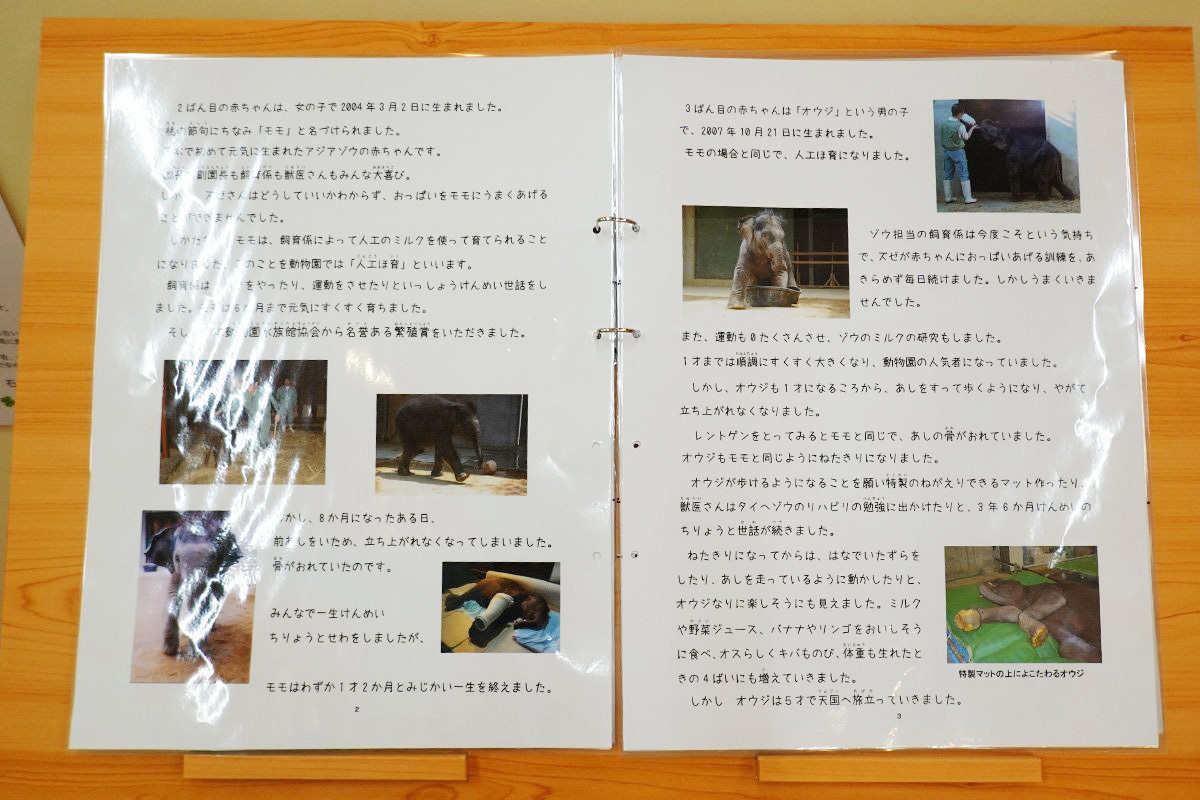 2ばん目の赤ちゃんは、女の子で2004年3月2日に生まれました。
桃の節句にちなみ「モモ」と名づけられました。
で初めて元気に生まれたアジアゾウの赤ちゃんです。
副園長も飼育係も獣医さんもみんな大喜び。
ズゼさんはどうしていいかわからず、おっぱいをモモにうまくあげる
ことができませんでした。
モモは、飼育係によって人工のミルクを使って育てられること
になりました。このことを動物園では「人工ほ育」といいます。
飼育係は をやったり、運動をさせたりといっしょうけんめい世話をし
ました。 は6か月まで元気にすくすく育ちました。
そし 動物園水族館協会から名誉ある繁殖賞をいただきました。
しかし、8か月になったある日、
前あしをいため、立ち上がれなくなってしまいました。
骨がおれていたのです。
みんなで一生けんめい
ちりょうとせわをしましたが、
モモはわずか1才2か月とみじかい一生を終えました。
2
3ばん目の赤ちゃんは「オウジ」という男の子
で、2007年10月21日に生まれました。
モモの場合と同じで、人工ほ育になりました。
ゾウ担当の飼育係は今度こそという気持ち
で、ズゼが赤ちゃんにおっぱいあげる訓練を、あ
きらめず毎日続けました。しかしうまくいきま
せんでした。
また、運動も0たくさんさせ、ゾウのミルクの研究もしました。
1才までは順調にすくすく大きくなり、動物園の人気者になっていました。
しかし、オウジも1才になるころから、あしをすって歩くようになり、やがて
立ち上がれなくなりました。
レントゲンをとってみるとモモと同じで、あしの骨がおれていました。
オウジもモモと同じようにねたきりになりました。
オウジが歩けるようになることを願い特製のねがえりできるマット作ったり、
獣医さんはタイへゾウのリハビリの勉強に出かけたりと、3年6か月けんめいの
ちりょうと世話が続きました。
ねたきりになってからは、はなでいたずらを
したり、あしを走っているように動かしたりと、
オウジなりに楽しそうにも見えました。ミルク
や野菜ジュース、バナナやリンゴをおいしそう
に食べ、オスらしくキバものび、体重も生れたと
きの4ばいにも増えていきました。
特製マットの上によこたわるオウジ
しかし オウジは5才で天国へ旅立っていきました。
3